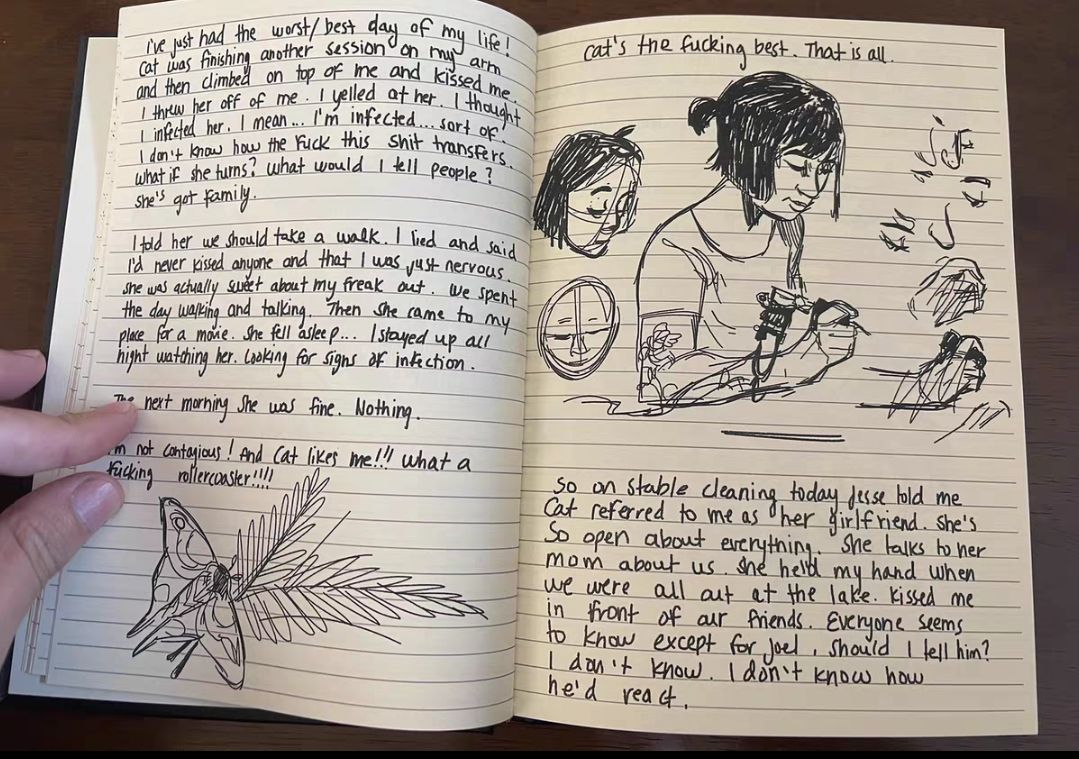 I've just had the worst/best day of my life!
Cat was finishing another session on my arm
and then climbed on top of me and kissed me.
I threw her off of me. I yelled at her. I thought
I infected her. I mean... I'm infected... sort of.
I don't know how the fuck this shit transfers.
what if she turns? what would I tell people?
she's got family.
I told her we should take a walk. I lied and said
I'd never kissed anyone and that I was just nervous.
she was actually sweet about my freak out. We spent
the day walking and talking. Then she came to my
place for a movie. She fell asleep... I stayed up all
night watching her. Looking for signs of infection.
The next morning she was fine. Nothing.
I'm not contagious! And Cat likes me!!! what a
fucking rollercoaster!!!!
Cat's the fucking best. That is all.
So on stable cleaning today Jesse told me
Cat referred to me as her girlfriend. She's
so open about everything. She talks to her
mom about us. She held my hand when
we were all out at the lake. Kissed me
in front of our friends. Everyone seems
to know except for Joel. Should I tell him?
I don't know. I don't know how
he'd react.